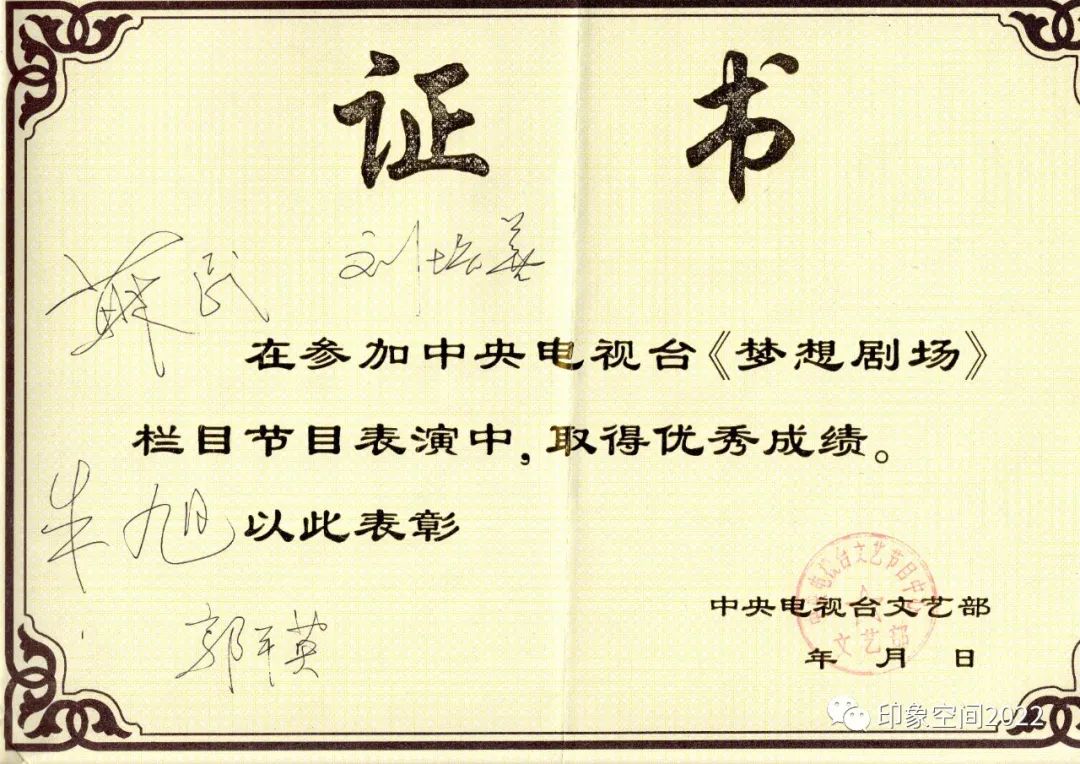 证 书
苏民 刘培善
在参加中央电视台《梦想剧场》
栏目节目表演中,取得优秀成绩。
朱旭 以此表彰
中央电视台文艺节目中心
文艺部
中央电视台文艺部
郭 英
年 月 日
印象空间2022